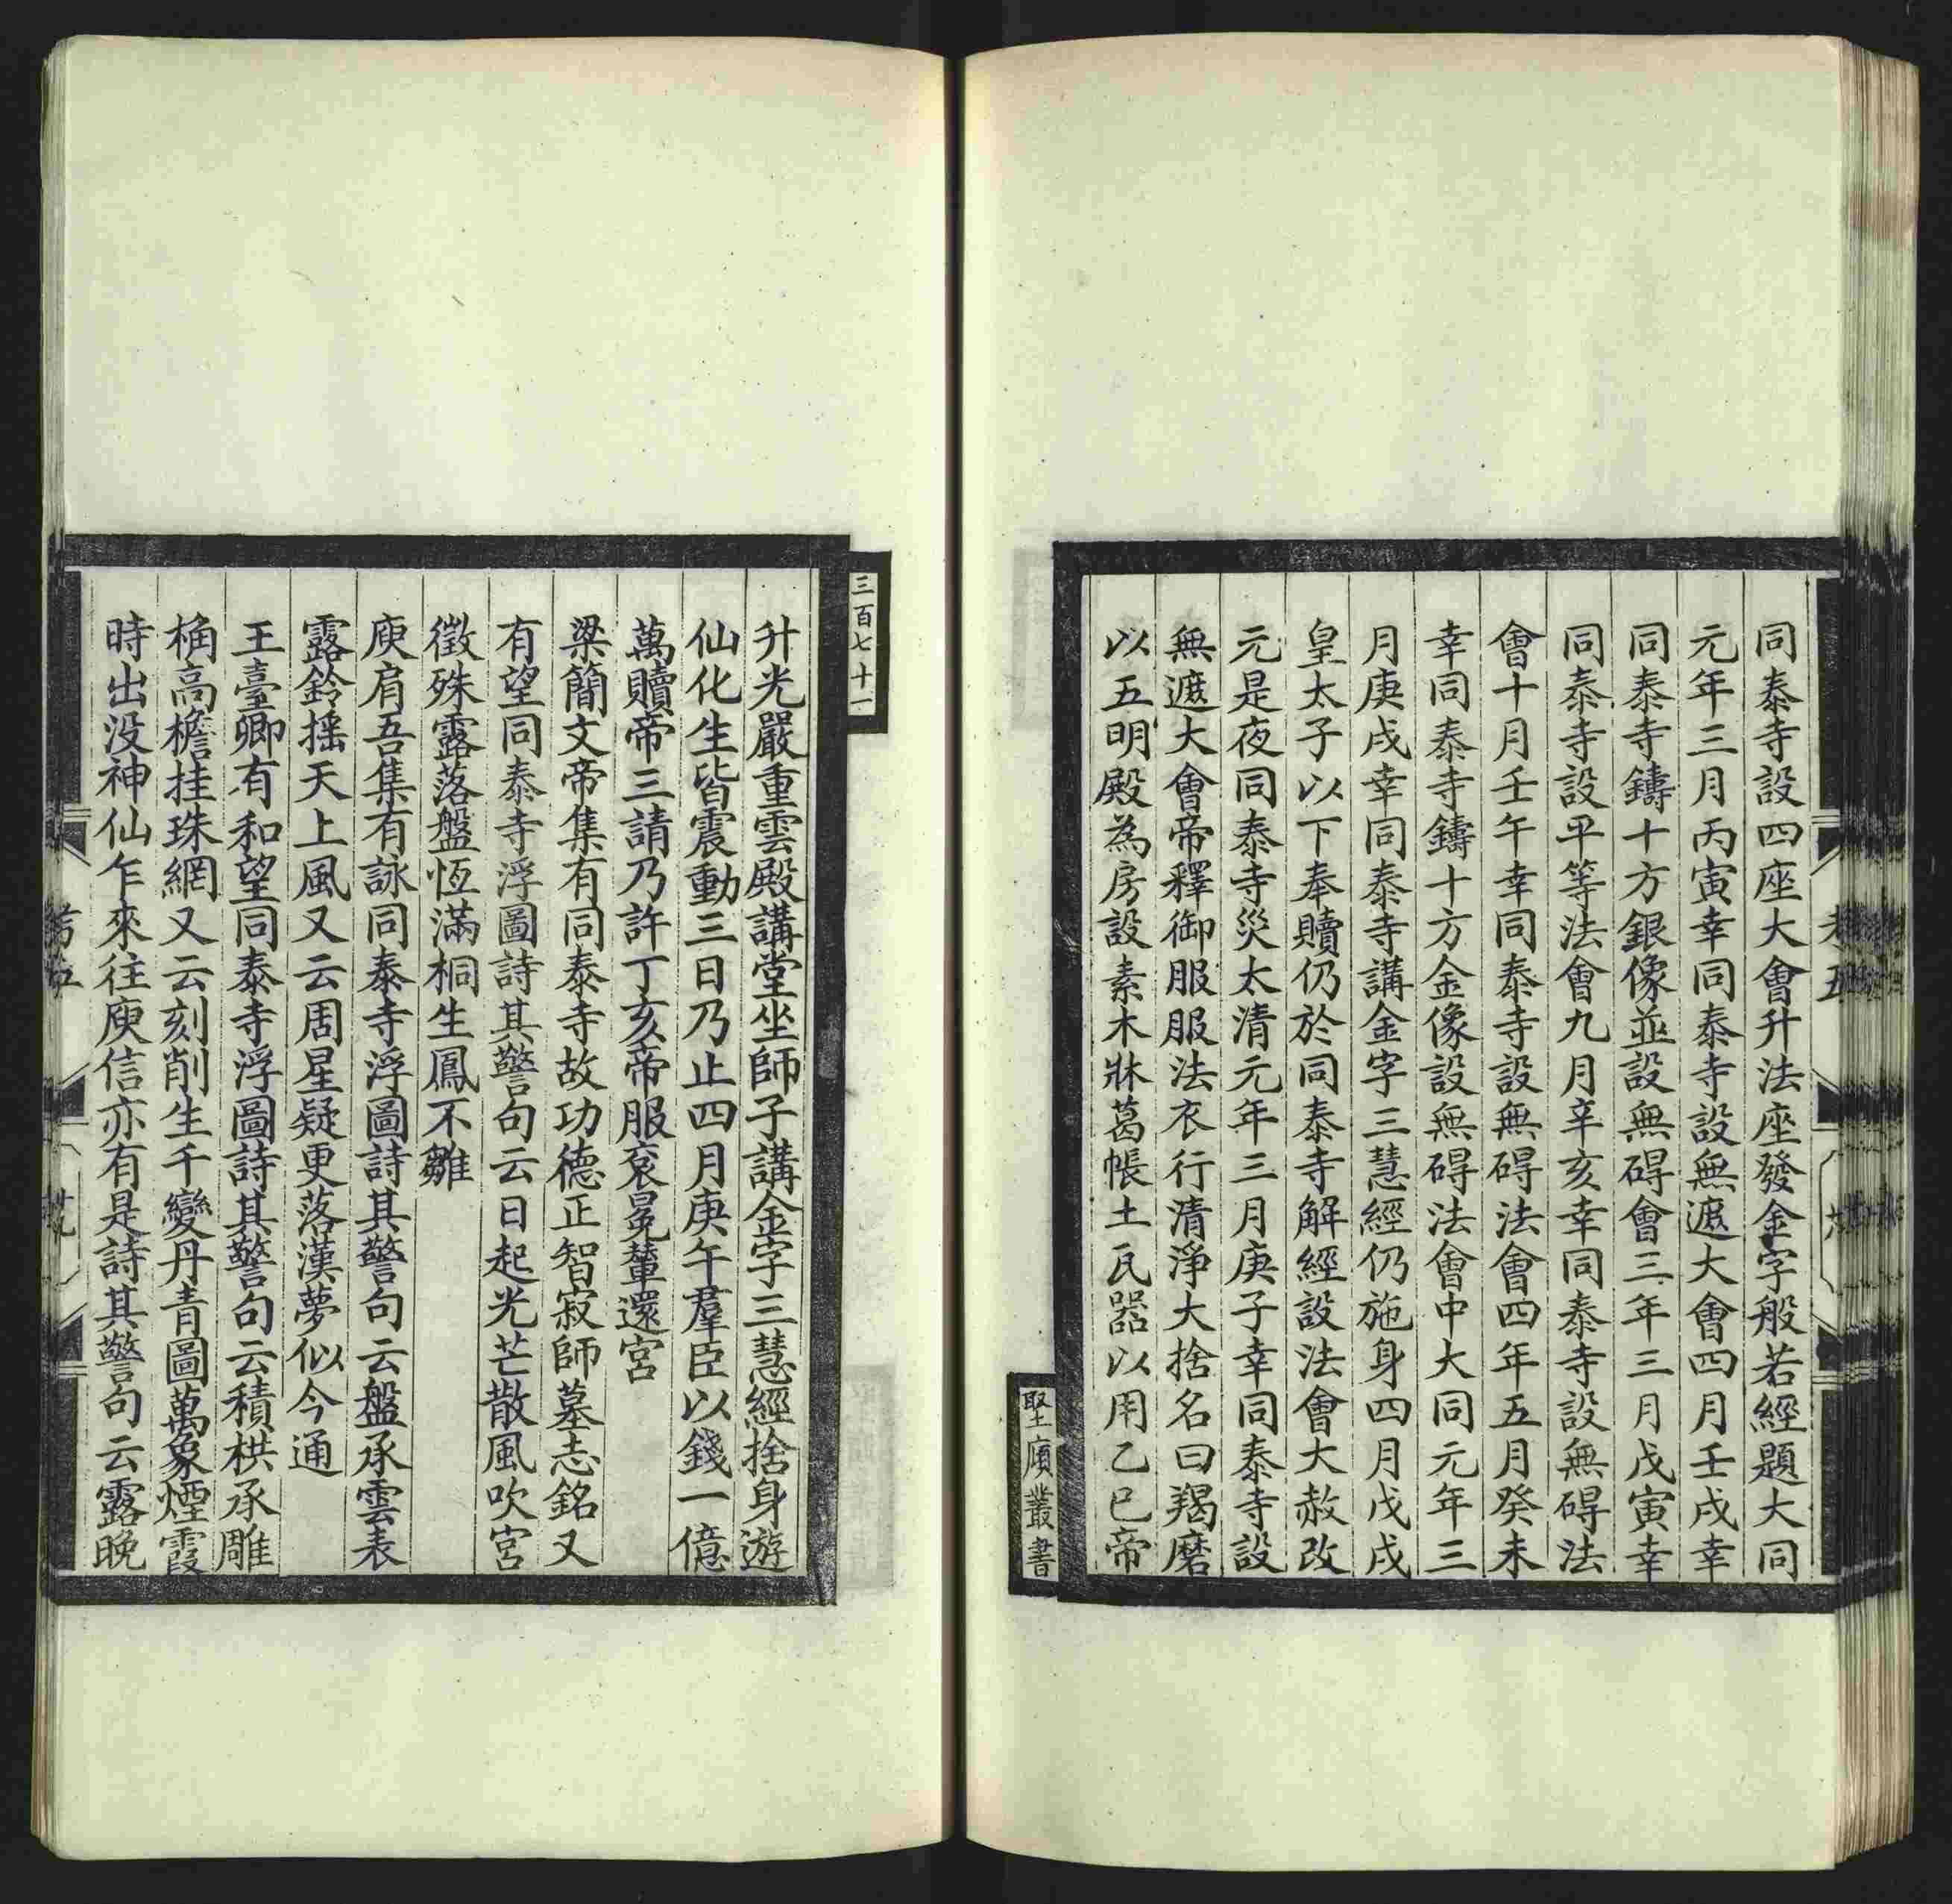 同泰寺設四座大會升法座發金字般若經題大同
元年三月丙寅幸同泰寺設無遮大會四月壬戌幸
同泰寺鑄十方銀像並設無碍會三年三月戊寅幸
同泰寺設平等法會九月辛亥幸同泰寺設無碍法
會十月壬午幸同泰寺設無碍法會四年五月癸未
幸同泰寺鑄十方金像設無碍法會中大同元年三
月庚戌幸同泰寺講金字三慧經仍施身四月戊戌
皇太子以下奉贖仍於同泰寺解經設法會大赦改
元是夜同泰寺災太清元年三月庚子幸同泰寺設
無遮大會帝釋御服服法衣行清淨大捨名曰羯磨
以五明殿為房設素木牀葛帳土瓦器以用乙巳帝
堅瓠叢書
三百七十一
升光嚴重雲殿講堂坐師子講金字三慧經捨身遊
仙化生皆震動三日乃止四月庚午羣臣以錢一億
萬贖帝三請乃許丁亥帝服袞冕輦還宮
梁簡文帝集有同泰寺故功德正智寂師墓志銘又
有望同泰寺浮圖詩其警句云日起光芒散風吹宮
徵殊露落盤恆滿桐生鳳不雛
庾肩吾集有詠同泰寺浮圖詩其警句云盤承雲表
露鈴搖天上風又云周星疑更落漢夢似今通
王臺卿有和望同泰寺浮圖詩其警句云積栱承雕
桷高檐挂珠網又云刻削生千變丹青圖萬象煙霞
時出没神仙乍來往庾信亦有是詩其警句云露晚